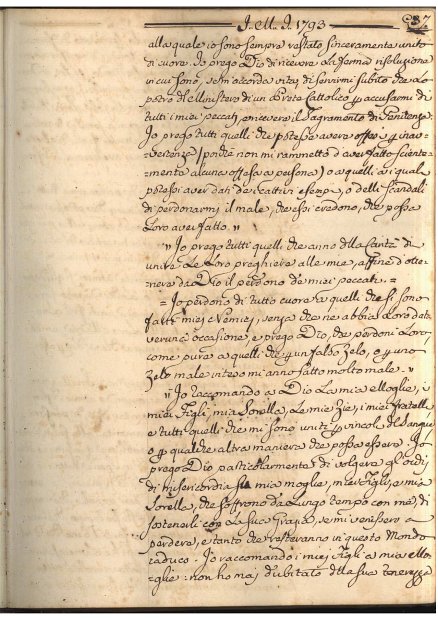 J. M. J. 1793 37
alla quale io sono sempre restato sinceramente unito
di cuore. Io prego Dio di ricevere la ferma risoluzione
in cui sono, se mi accorda vita, di servirmi subito che lo
potrò del Ministero di un Prete Cattolico p accusarmi di
tutti i miei peccati, e ricevere il Sagramento di Penitenza.
Io prego tutti quelli che potessi avere offesi p inav=
=vertenza (poichè non mi rammento d'aver fatto sciente=
=mente alcuna offesa a persona) o a quelli a i quali
potessi aver dati de' cattivi esempi, o delli scandali
di perdonarmi il male, che essi credono, che possa
loro aver fatto. "
" Io prego tutti quelli che anno della Carità di
unire le loro preghiere alle mie, affine d'otte=
nere da Dio il perdono de' miei peccati. =
= Io perdono di tutto cuore a quelli che si sono
fatti miei Nemici, senza che ne abbia loro data
veruna occasione, e prego Dio, che perdoni loro,
come pure a quelli che p un falso zelo, o p uno
zelo male inteso mi anno fatto molto male. "
" Io Raccomando a Dio la mia Moglie, i
miei Figli, mia Sorella, le mie Zie, i miei fratelli
e tutti quelli che mi sono uniti p vincolo del Sangue
o p qualche altra maniera che possa essere. Io
prego Dio particolarmente di volgere gl'occhi
di misericordia su mia moglie, miei Figli, e mia
Sorella, che soffrono da lungo tempo con me, di
sostenerli con la sua Grazia, se mi venissero a
perdere, e tanto che resteranno in questo Mondo
caduco. Io raccomando i miei Figli a mia Mo=
=glie: non ho mai dubitato della sua tenerezza